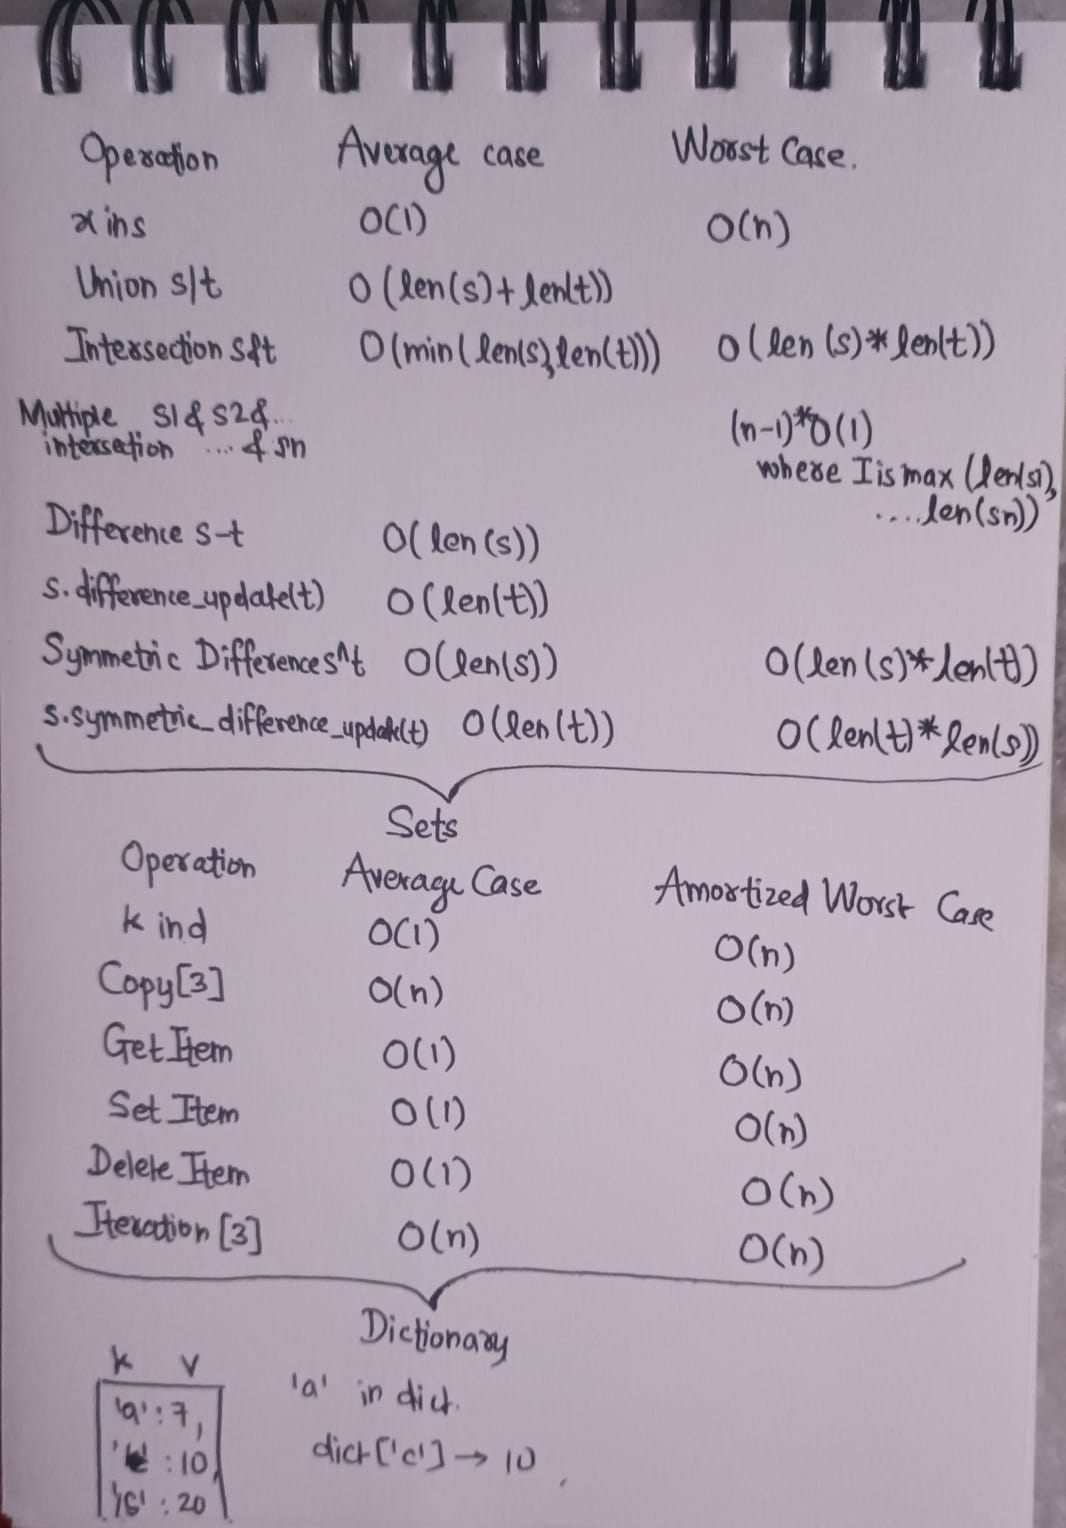 Operation Average case Worst Case.
x in s O(1) O(n)
Union s|t O(len(s)+len(t))
Intersection s&t O(min(len(s),len(t))) O(len(s)*len(t))
Multiple s1&s2&... (n-1)*O(l)
intersetion ...&sn where I is max (len(s1),
....len(sn))
Difference s-t O(len(s))
s.difference_update(t) O(len(t))
Symmetric Difference s^t O(len(s)) O(len(s)*len(t))
s.symmetric_difference_update(t) O(len(t)) O(len(t)*len(s))
Sets
Operation Average Case Amortized Worst Case
k in d O(1) O(n)
Copy[3] O(n) O(n)
Get Item O(1) O(n)
Set Item O(1) O(n)
Delete Item O(1) O(n)
Iteration [3] O(n) O(n)
Dictionary
k v
'a':7, 'a' in dict.
:10, dict['c']→10
: 20